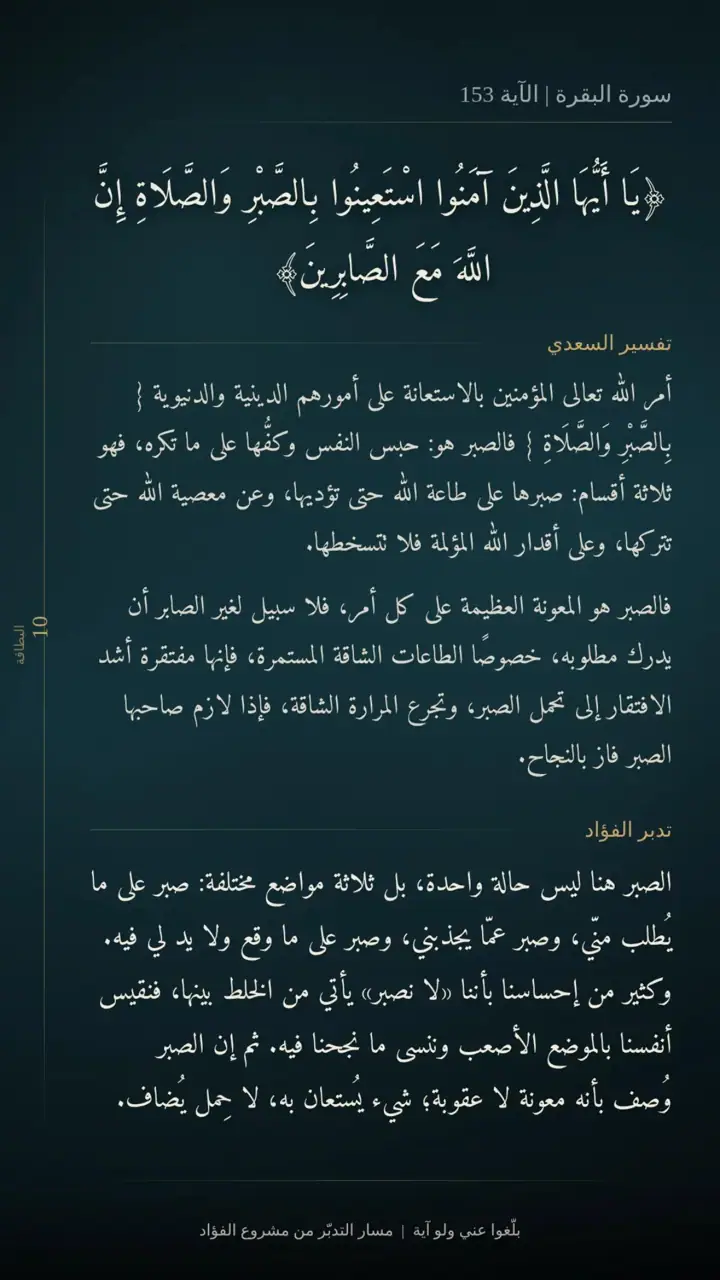 سورة البقرة | الآية 153
﴿يَا أَيُّهَا الَّذِينَ آمَنُوا اسْتَعِينُوا بِالصَّبْرِ وَالصَّلَاةِ إِنَّ
اللَّهَ مَعَ الصَّابِرِينَ﴾
تفسير السعدي
أمر الله تعالى المؤمنين بالاستعانة على أمورهم الدينية والدنيوية {
بِالصَّبْرِ وَالصَّلَاةِ } فالصبر هو: حبس النفس وكفُّها على ما تكره، فهو
ثلاثة أقسام: صبرها على طاعة الله حتى تؤديها، وعن معصية الله حتى
تتركها، وعلى أقدار الله المؤلمة فلا تتسخطها.
فالصبر هو المعونة العظيمة على كل أمر، فلا سبيل لغير الصابر أن
يدرك مطلوبه، خصوصًا الطاعات الشاقة المستمرة، فإنها مفتقرة أشد
الافتقار إلى تحمل الصبر، وتجرع المرارة الشاقة، فإذا لازم صاحبها
الصبر فاز بالنجاح.
البطاقة
10
تدبر الفؤاد
الصبر هنا ليس حالة واحدة، بل ثلاثة مواضع مختلفة: صبر على ما
يُطلب منّي، وصبر عمّا يجذبني، وصبر على ما وقع ولا يد لي فيه.
وكثير من إحساسنا بأننا «لا نصبر» يأتي من الخلط بينها، فنقيس
أنفسنا بالموضع الأصعب وننسى ما نجحنا فيه. ثم إن الصبر
وُصف بأنه معونة لا عقوبة؛ شيء يُستعان به، لا حِمل يُضاف.
بلّغوا عني ولو آية | مسار التدبّر من مشروع الفؤاد